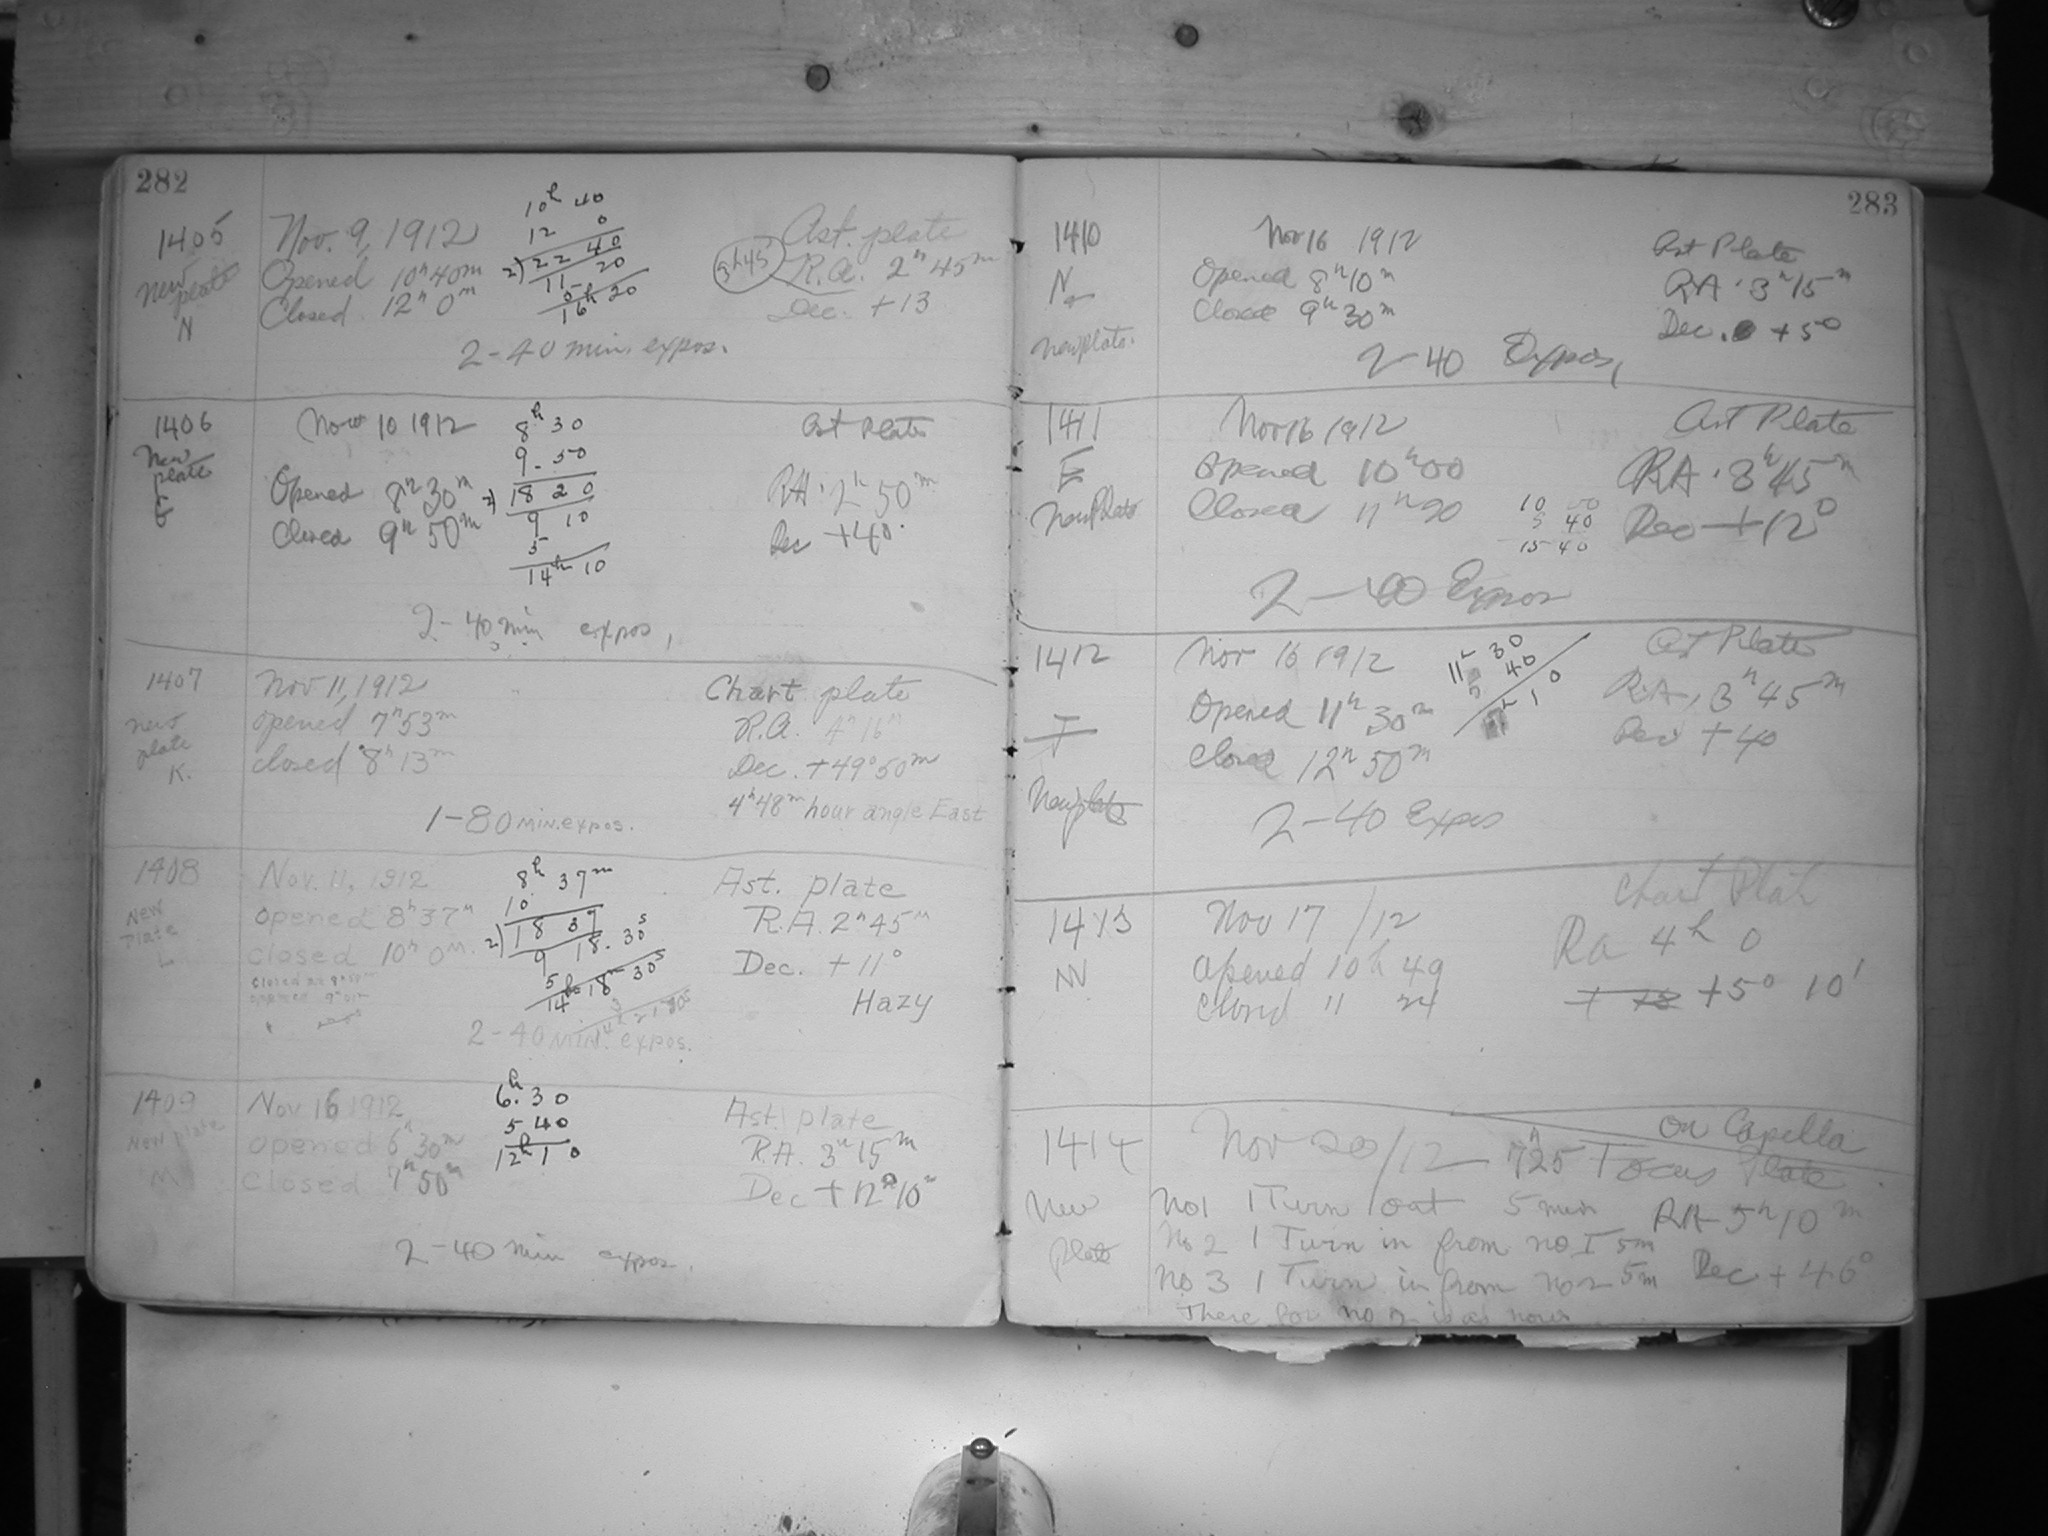 282
1405
new plate
N
Nov. 9, 1912
Opened 10h 40m
Closed 12h 0m
10h 40
12 0
2) 22 40
11 20
5
16h 20
3h 45
Ast. plate
R.A. 2h 45m
Dec. +13
2-40 min. expos.
1406
New plate
Nov 10 1912
Opened 8h 30m
Closed 9h 50m
8h 30
9. 50
2) 18 20
9 10
5
14h 10
Ast Plate
RA. 2h 50m
Dec +40.
2-40 min expos,
1407
new plate
K.
Nov 11, 1912
opened 7h 53m
closed 8h 13m
Chart plate
R.A. 4h 16m
Dec. +49° 50m
4h 48m hour angle East
1-80 MIN. expos.
1408
New Plate
L
Nov. 11, 1912
opened 8h 37m
closed 10h 0m.
8h 37m
10
2) 18 37
9 18. 30s
5
14h 18m 30s
Ast. plate
R.A. 2h 45m
Dec. +11°
Hazy
2-40 MIN. expos.
1409
New plate
M
Nov 16 1912
opened 6h 30m
closed 7h 50m
6h. 30
5 40
12h 10
Ast. plate
R.A. 3h 15m
Dec +12° 10m
2-40 min expos.
283
1410
N
new plate.
Nov 16 1912
Opened 8h 10m
Closed 9h 30m
Ast Plate
RA. 3h 15m
Dec. +50
2-40 Expos,
1411
E
New Plate
Nov 16 1912
Opened 10h 00
Closed 11h 20
10 00
5 40
15 40
Ast Plate
RA. 3h 45m
Dec +12°
2-40 Expos
1412
New plate
Nov 16 1912
Opened 11h 30m
Closed 12h 50m
11h 30
5 40
Ast Plate
RA, 3h 45m
Dec +40
2-40 Expos
1413
N
Nov 17/12
opened 10h 49
Closed 11 24
Chart Plate
Ra 4h 0
+5° 10'
1414
New plate
Nov 20/12 7h25 Focus Plate
on Capella
No 1 1 Turn out 5 min
No 2 1 Turn in from no I 5m
No 3 1 Turn in from no 2 5m
RA 5h 10m
Dec +46°
There for no 2 is as now